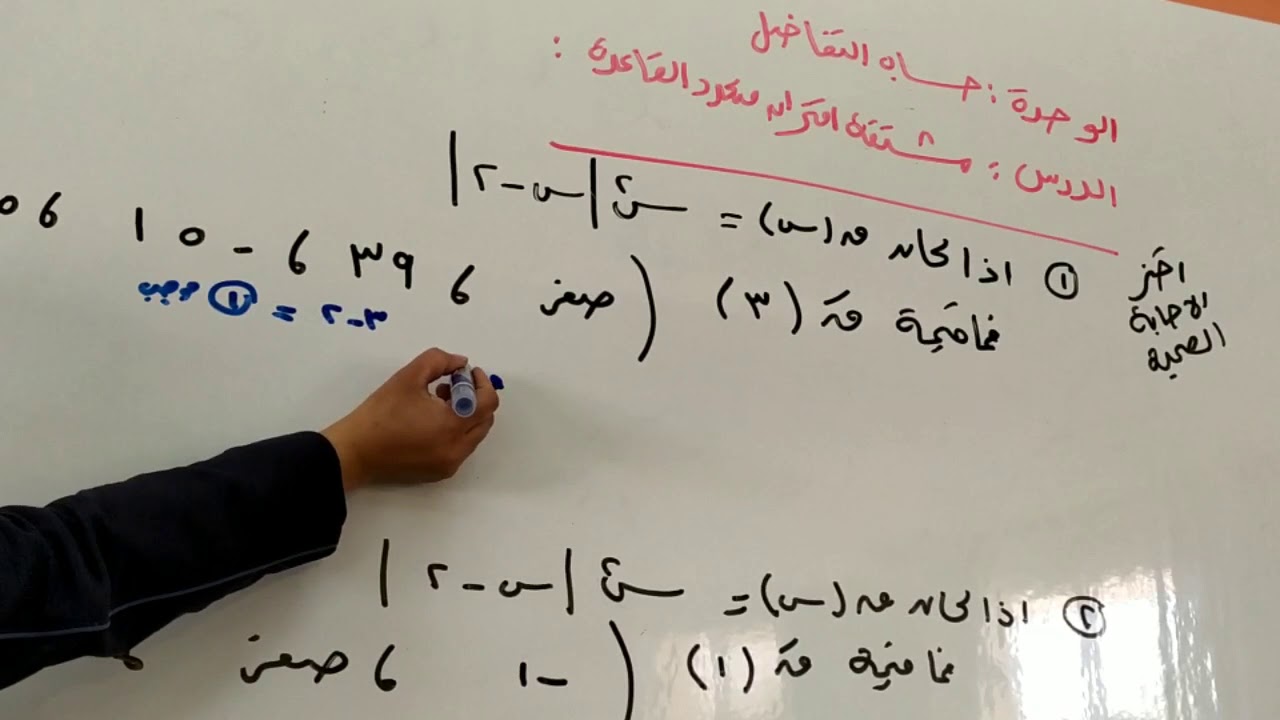 الوحدة : حساب التفاضل
الدرس : مشتقة اقتران متعدد القاعدة :
اختر الاجابة الصحيحة
① اذا كان ق(س) = س² |س - ٢|
فما قيمة قَ(٣) ( صفر ، ٣٩ ، - ١٥ ،
٣-٢ = ① موجب
② اذا كان ق(س) = س٤ |س - ٢|
فما قيمة قَ(١) ( -١ ، صفر